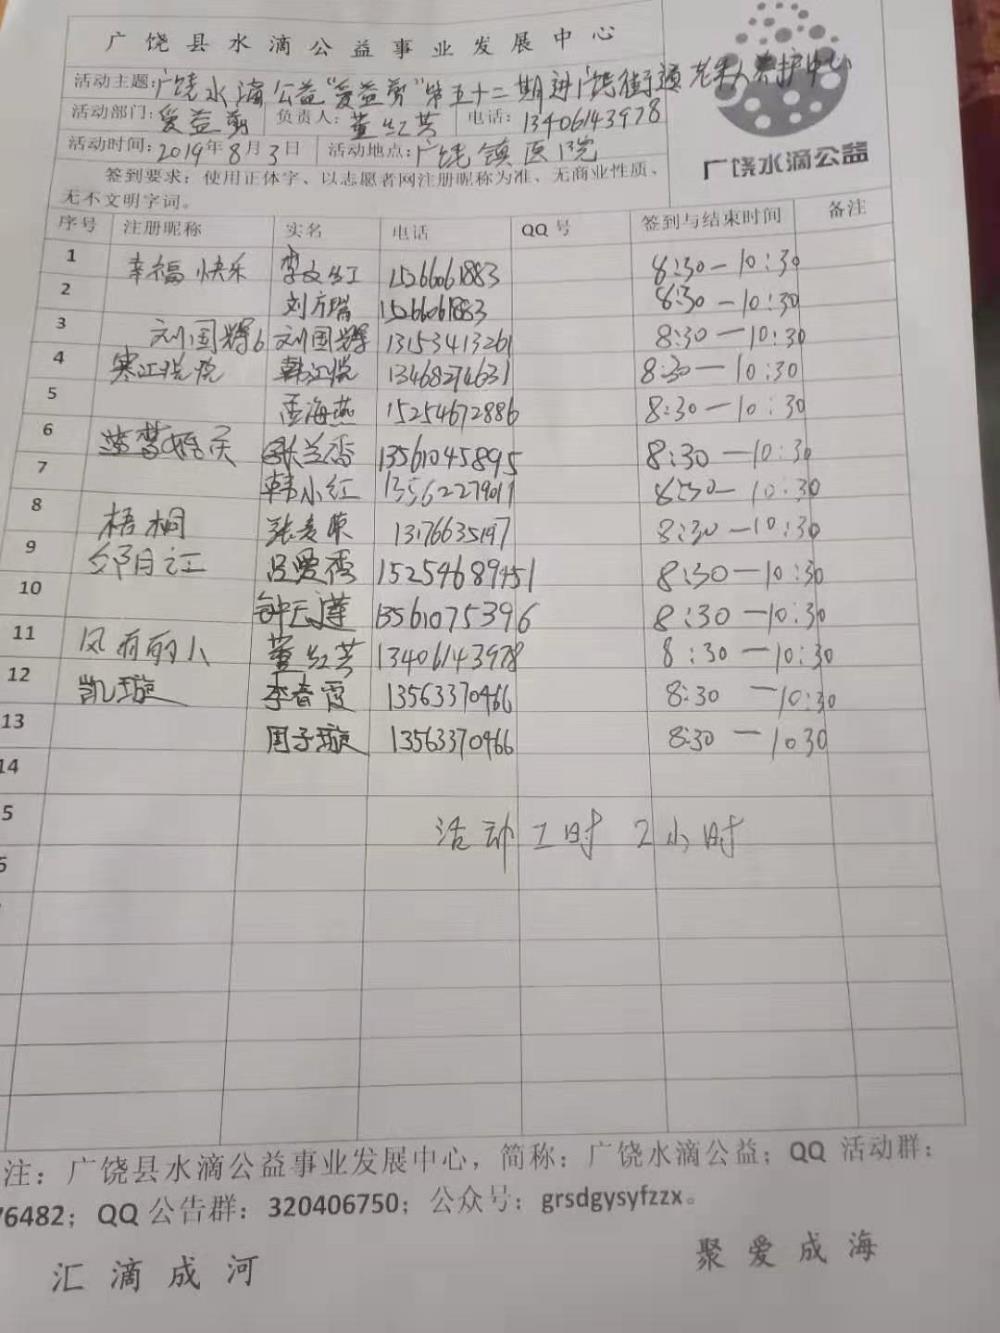 广饶县水滴公益事业发展中心
活动主题:广饶水滴公益“爱益剪”第五十二期进广饶街道老年人养护中心
活动部门:爱益剪 负责人:董红芸 电话:13406143978
活动时间:2019年8月3日 活动地点:广饶镇医院
广饶水滴公益
签到要求:使用正体字、以志愿者网注册昵称为准、无商业性质、
无不文明字词。
序号 注册昵称 实名 电话 QQ号 签到与结束时间 备注
1 幸福快乐 李文红 15266061883 8:30—10:30
2 刘方瑞 15266061883 8:30—10:30
3 刘国辉6 刘国辉 13153413261 8:30—10:30
4 寒江悦悦 韩江悦 13468274631 8:30—10:30
5 孟海燕 15254672886 8:30—10:30
6 张兰香 13561045895 8:30—10:30
7 韩小红 13562279011 8:30—10:30
8 梧桐 张麦荣 13176635197 8:30—10:30
9 邹月江 吕爱香 15254689451 8:30—10:30
10 钟天莲 13561075396 8:30—10:30
11 风有的人 董红芸 13406143978 8:30—10:30
12 凯璇 李春霞 13563370466 8:30—10:30
13 周子璇 13563370466 8:30—1030
14
5 活动工时 2小时
注:广饶县水滴公益事业发展中心,简称:广饶水滴公益;QQ 活动群:
76482;QQ 公告群:320406750;公众号:grsdgysyfzzx。
汇滴成河 聚爱成海